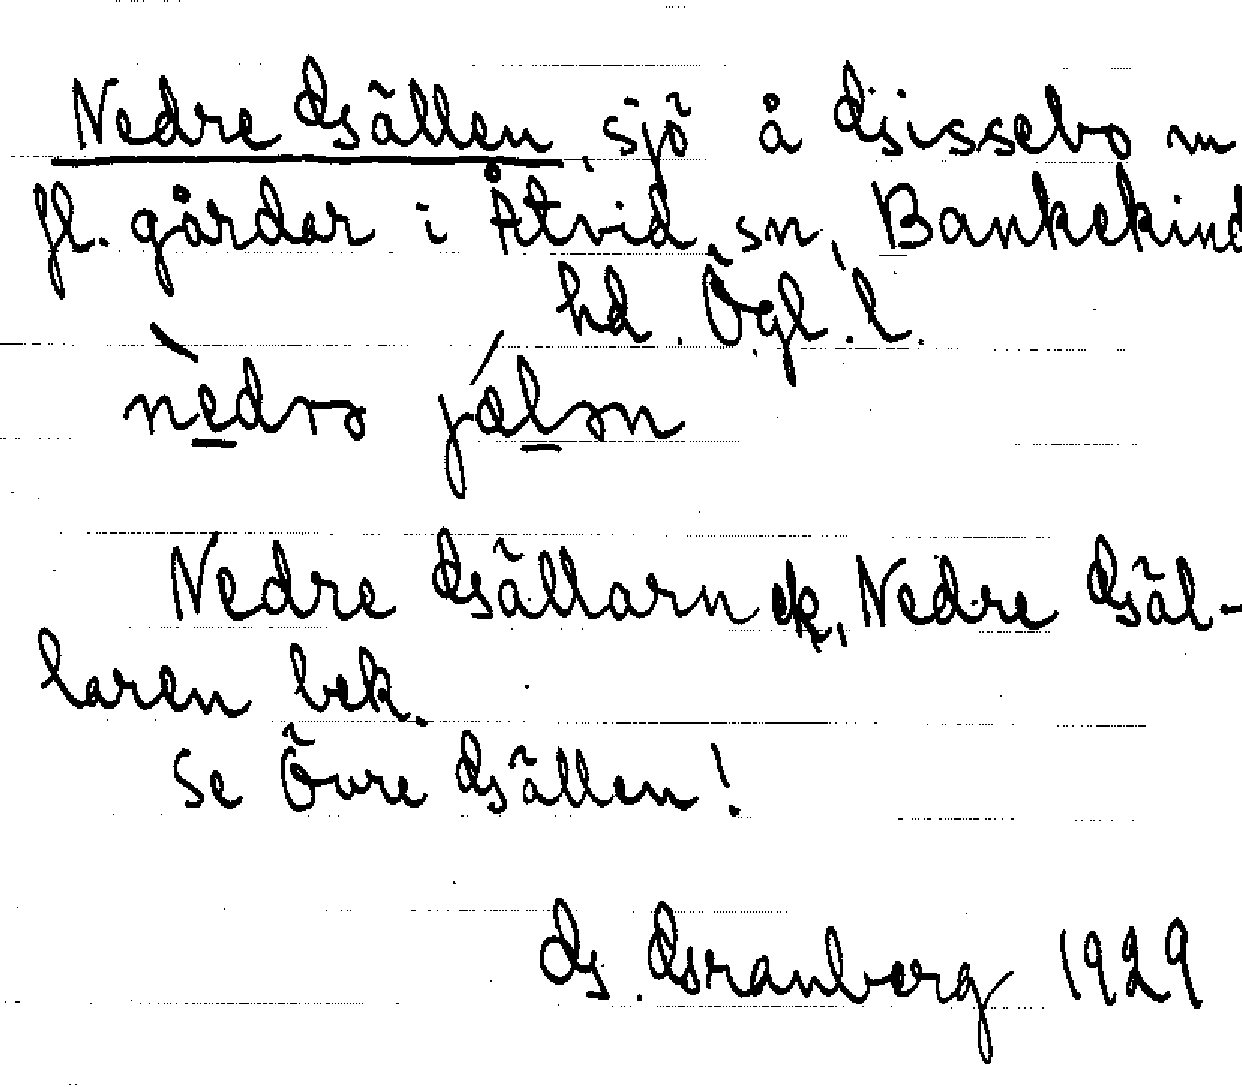 Nedre Gällen, sjö å Gissebo m
fl. gårdar i Åtvid. sn, Bankekind
hd. Ögl. l.
nèdrə jǽlən
Nedre Gällarn ek, Nedre Gäl-
laren bek.
Se Övre Gällen!
G. Granberg 1929